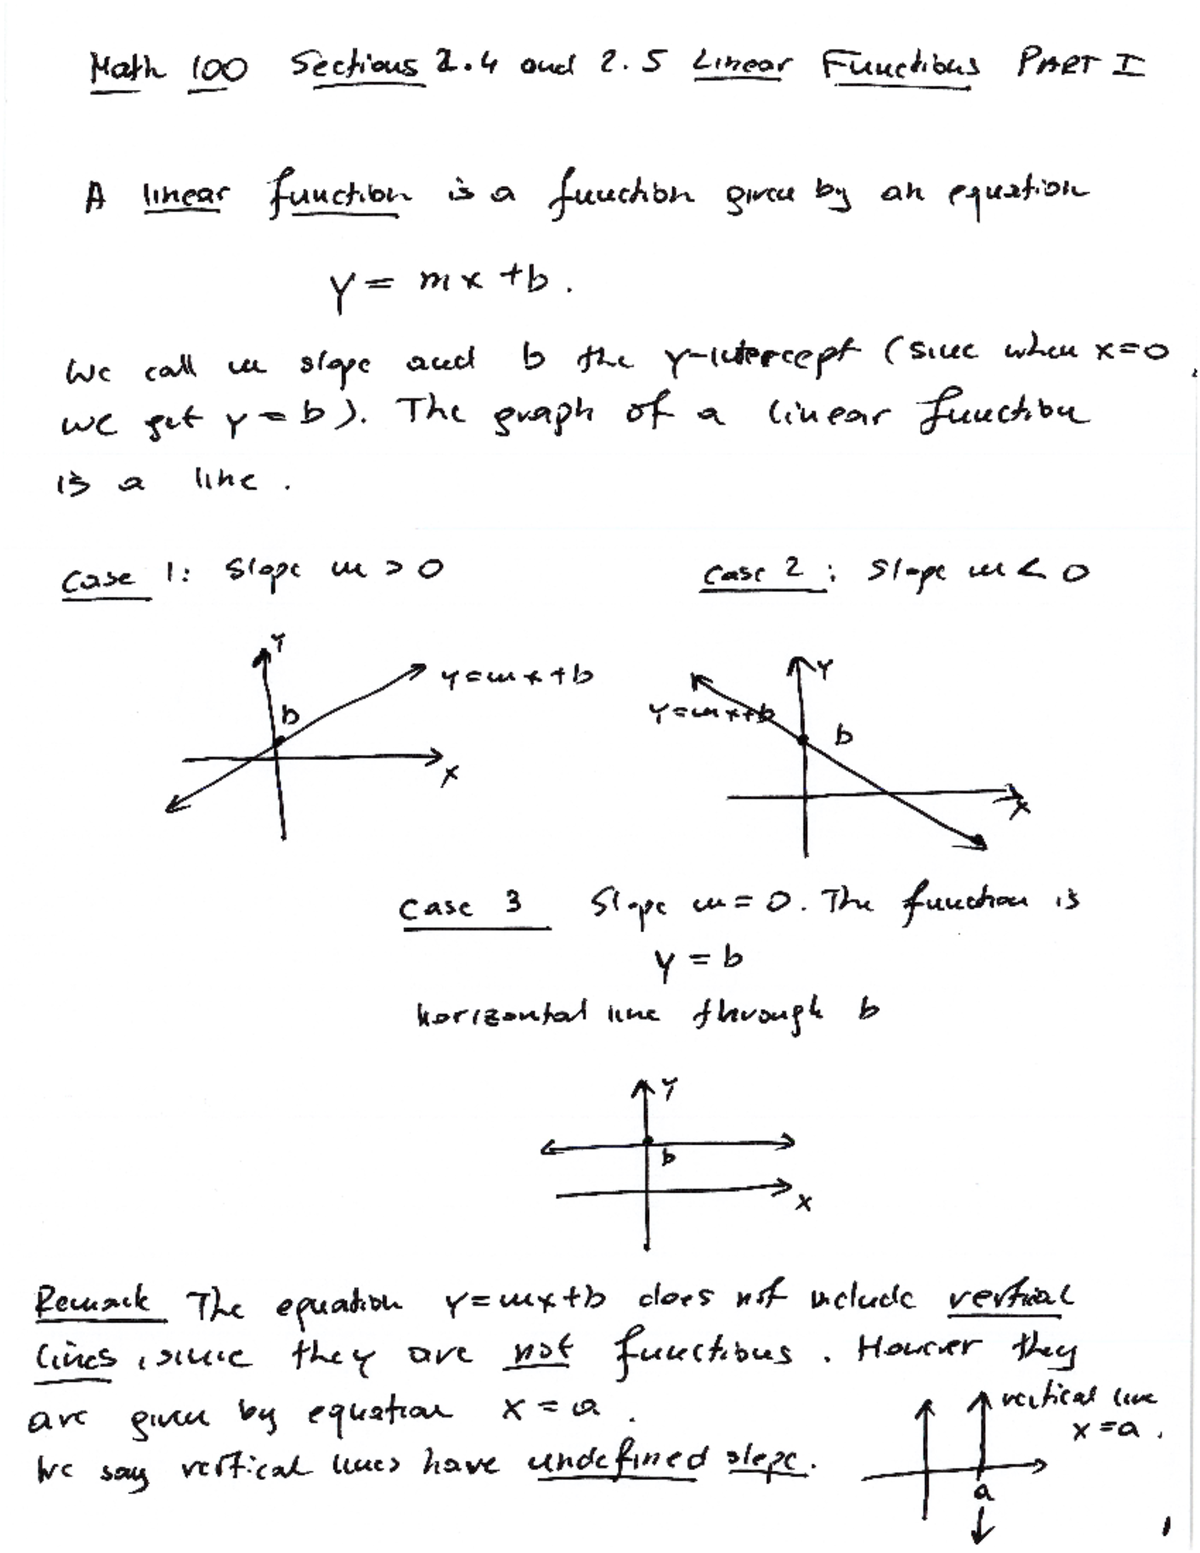 Math 100 Sections 2.4 and 2.5 Linear Functions PART I
A linear function is a function given by an equation
y = mx + b.
We call m slope and b the y-intercept (since when x=0,
we get y=b). The graph of a linear function
is a line.
Case 1: Slope m > 0
Case 2: Slope m < 0
Y
y=mx+b
b
X
Y
y=mx+b
b
X
Case 3 Slope m=0. The function is
y = b
horizontal line through b
Y
b
X
Remark The equation y=mx+b does not include vertical
lines, since they are not functions. However they
are given by equation x = a.
We say vertical lines have undefined slope.
vertical line
x=a.
a
1